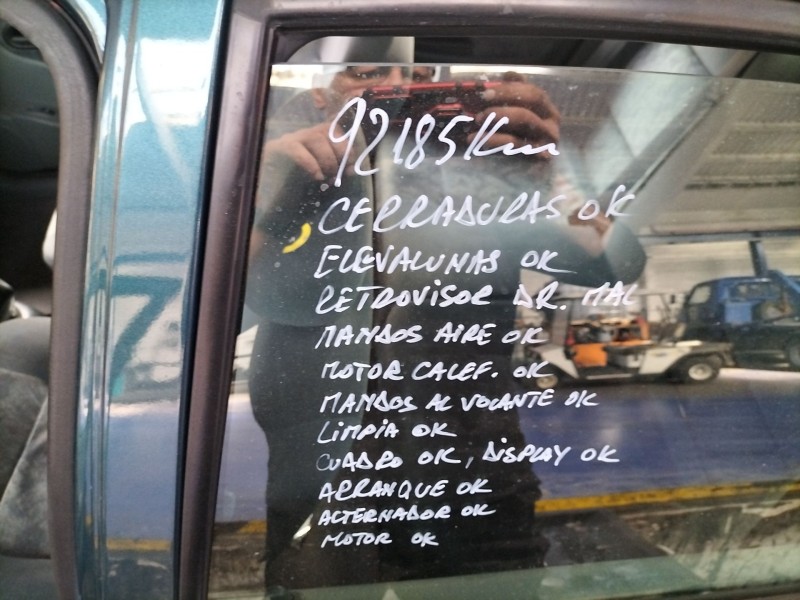 92185 Km
CERRADURAS OK
ELEVALUNAS OK
RETROVISOR DR. MAL
MANDOS AIRE OK
MOTOR CALEF. OK
MANDOS AL VOLANTE OK
LIMPIA OK
CUADRO OK, DISPLAY OK
ARRANQUE OK
ALTERNADOR OK
MOTOR OK
7